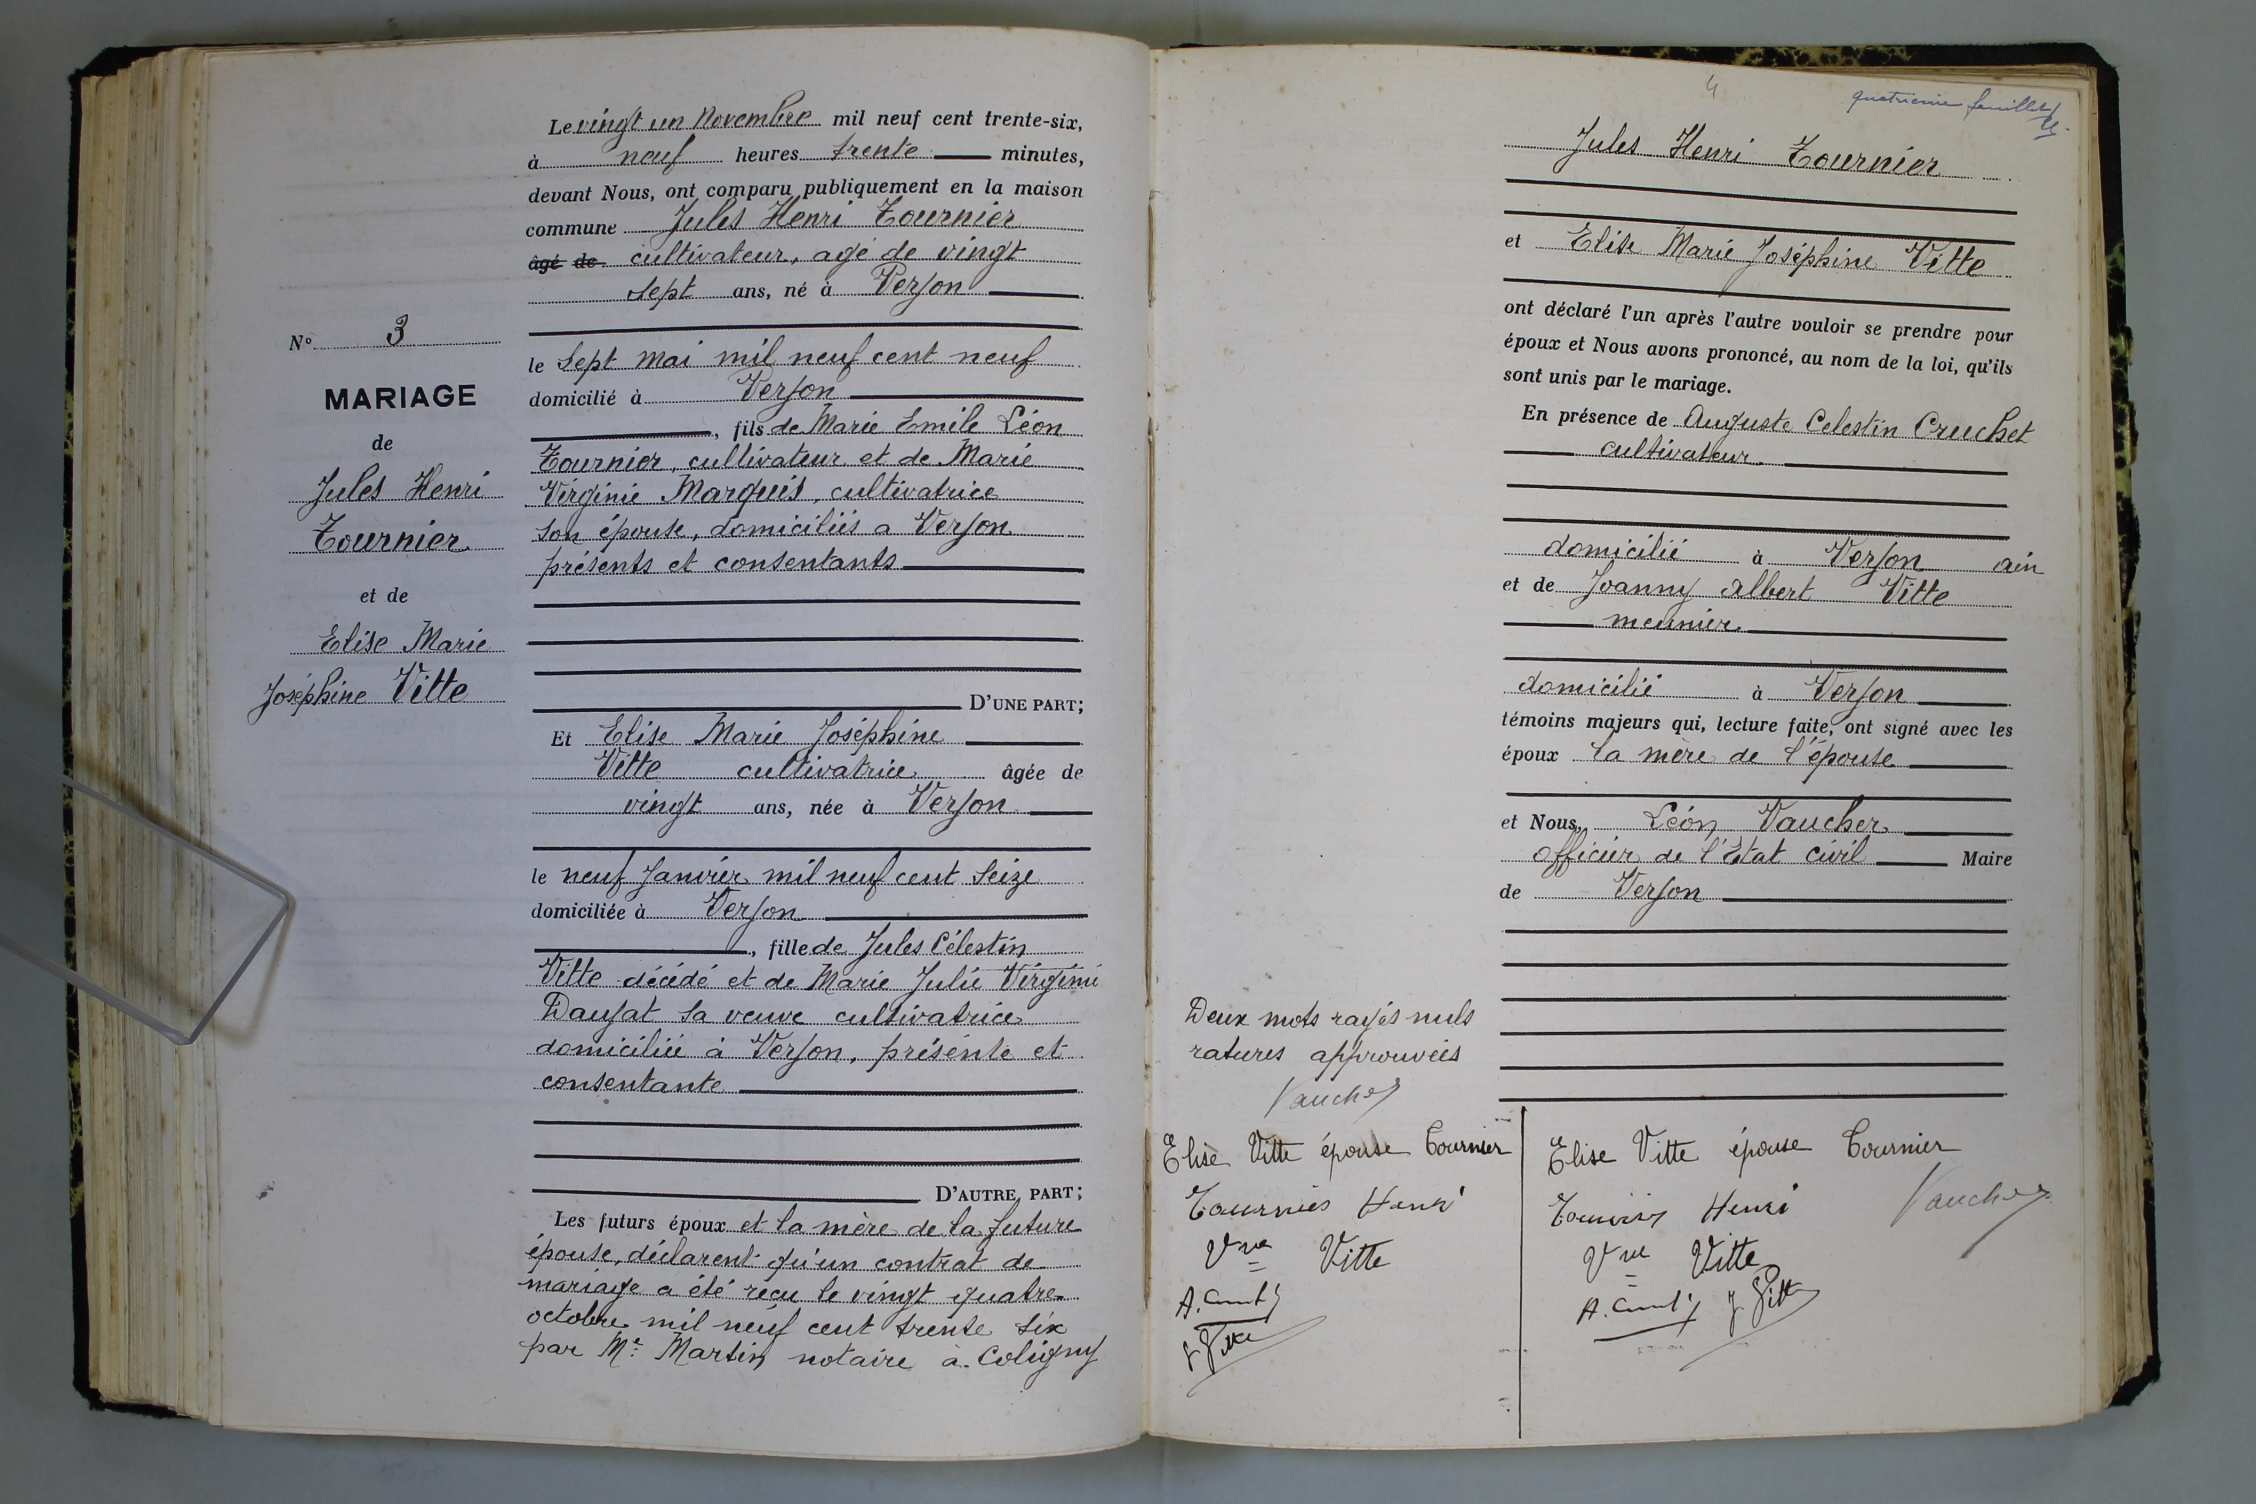 Le vingt un Novembre mil neuf cent trente-six,
à neuf heures trente minutes,
devant Nous, ont comparu publiquement en la maison
commune Jules Henri Tournier
âgé de cultivateur, agé de vingt
sept ans, né à Verjon
le sept mai mil neuf cent neuf
domicilié à Verjon
, fils de Marie Emile Léon
Tournier, cultivateur et de Marie
Virginie Marquis, cultivatrice
son épouse, domiciliés a Verjon
présents et consentants
D'UNE PART;
Et Elise Marie Joséphine
Vitte cultivatrice âgée de
vingt ans, née à Verjon
le neuf Janvier mil neuf cent seize
domiciliée à Verjon
, fille de Jules Célestin
Vitte décédé et de Marie Julie Virginie
Daujat sa veuve cultivatrice
domiciliée à Verjon, présente et
consentante
D'AUTRE PART;
Les futurs époux et la mère de la future
épouse, déclarent qu'un contrat de
mariage a été reçu le vingt quatre
octobre mil neuf cent trente six
par Me Martin notaire à Coligny
N° 3
MARIAGE
de
Jules Henri
Tournier
et de
Elise Marie
Joséphine Vitte
4
quatrième feuillet
Jules Henri Tournier
et Elise Marie Joséphine Vitte
ont déclaré l'un après l'autre vouloir se prendre pour
époux et Nous avons prononcé, au nom de la loi, qu'ils
sont unis par le mariage.
En présence de Auguste Celestin Cruchet
cultivateur
domicilié à Verjon ain
et de Joanny Albert Vitte
meunier
domicilié à Verjon
témoins majeurs qui, lecture faite, ont signé avec les
époux la mère de l'épouse
et Nous, Léon Vaucher
officier de l'Etat civil Maire
de Verjon
Deux mots rayés nuls
ratures approuvées
Vaucher
Elise Vitte épouse Tournier
Tournier Henri
Vve Vitte
A. 
J Vitte
Elise Vitte épouse Tournier
Tournier Henri
Vaucher
Vve Vitte
A. J Vitte